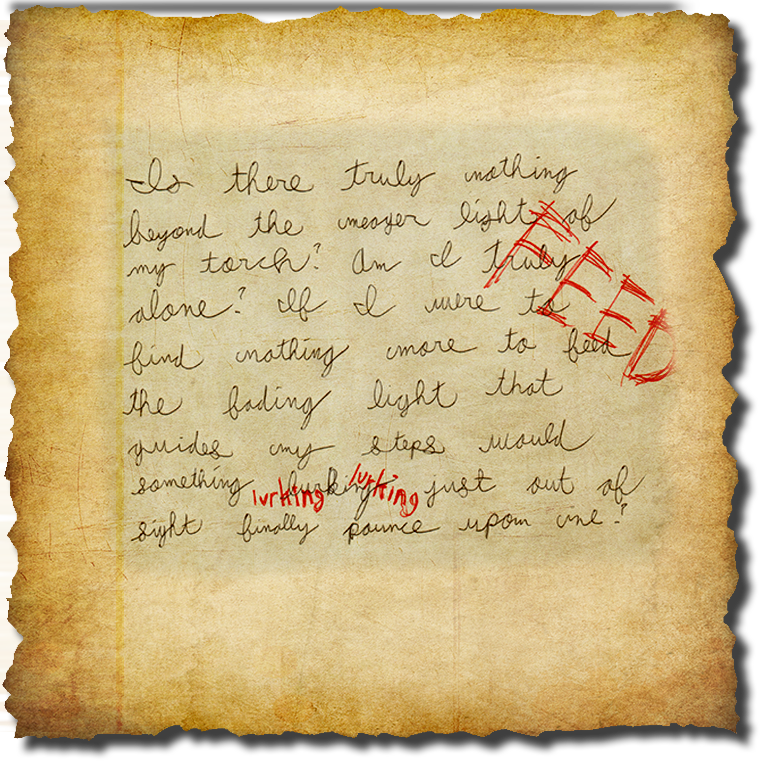 Is there truly nothing
beyond the meager light of
my torch? Am I truly
alone? If I were to
find nothing more to feed
the fading light that
guides my steps would
something lurking just out of
sight finally pounce upon me?
FEED
lurking
lurking